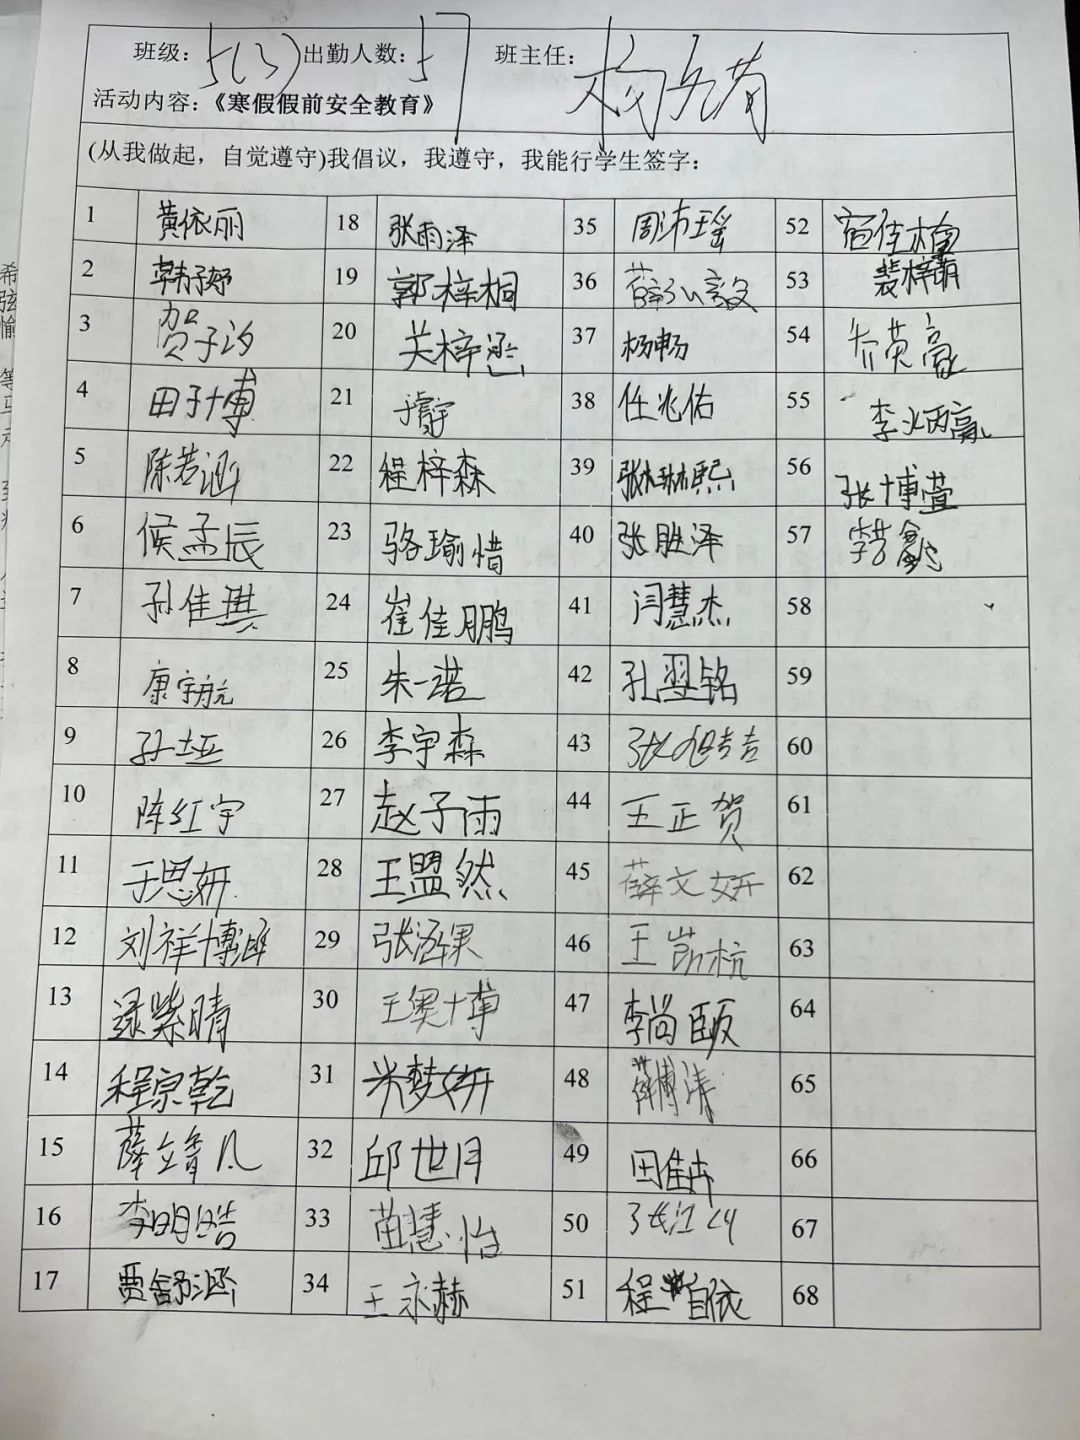 班级：5(3) 出勤人数：57 班主任：杨
活动内容：《寒假假前安全教育》
(从我做起，自觉遵守)我倡议，我遵守，我能行学生签字：
1 黄依丽 18 张雨泽 35 周沛瑶 52 宿佳楠
2 韩子妤 19 郭梓桐 36 薛弘毅 53 裴梓萌
3 贺子汐 20 关梓涵 37 杨畅 54 乔英豪
4 田子博 21 于睿宇 38 任兆佑 55 李炳赢
5 陈若涵 22 程梓森 39 张琳熙 56 张博萱
6 侯孟辰 23 骆瑜惜 40 张胜泽 57
7 孙佳琪 24 崔佳鹏 41 闫慧杰 58
8 康宇航 25 朱一诺 42 孔翌铭 59
9 孙士垭 26 李宇森 43 张旭喆 60
10 陈红宇 27 赵子雨 44 王正贺 61
11 于思妍 28 王盟然 45 薛文妍 62
12 刘祥博涵 29 张涵果 46 王凯杭 63
13 逯紫晴 30 王奥博 47 李尚颐 64
14 程宗乾 31 米梦妍 48 薛博涛 65
15 薛靖凡 32 邱世月 49 田佳卉 66
16 李明皓 33 苗慧怡 50 张江 67
17 贾舒涵 34 王永赫 51 程依 68
希
弦
愉
等